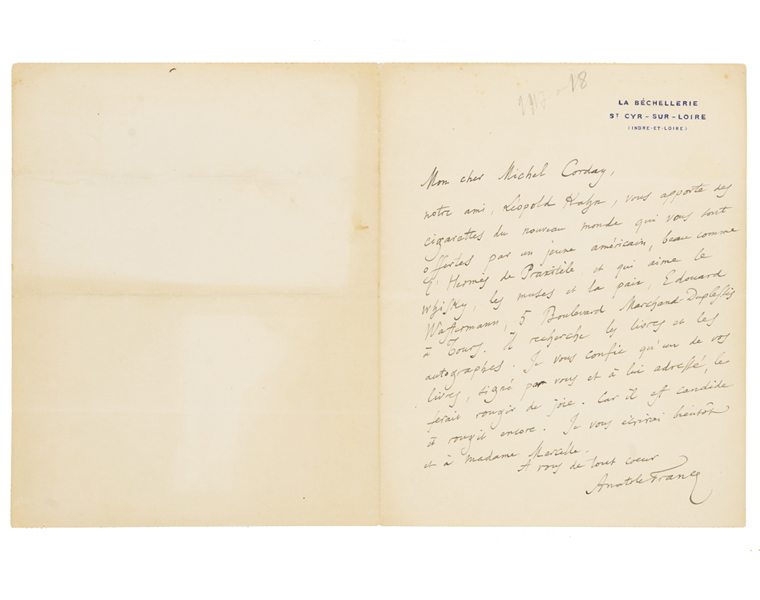 LA BÉCHELLERIE
ST CYR-SUR-LOIRE
(INDRE-ET-LOIRE)
Mon cher Michel Corday,
notre ami, Léopold Kahn, vous apporte des
cigarettes du nouveau monde qui vous sont
offertes par un jeune américain, beau comme
l'Hermès de Praxitèle et qui aime le
whisky, les muses et la paix, Edouard
Wassermann, 5 Boulevard Marchand-Duplessis
à Tours. Il recherche les livres et les
autographes. Je vous confie qu'un de vos
livres, signé par vous et à lui adressé, le
ferait rougir de joie. Car il est candide
et rougit encore. Je vous écrirai bientôt
et à madame
A vous de tout coeur
Anatole France